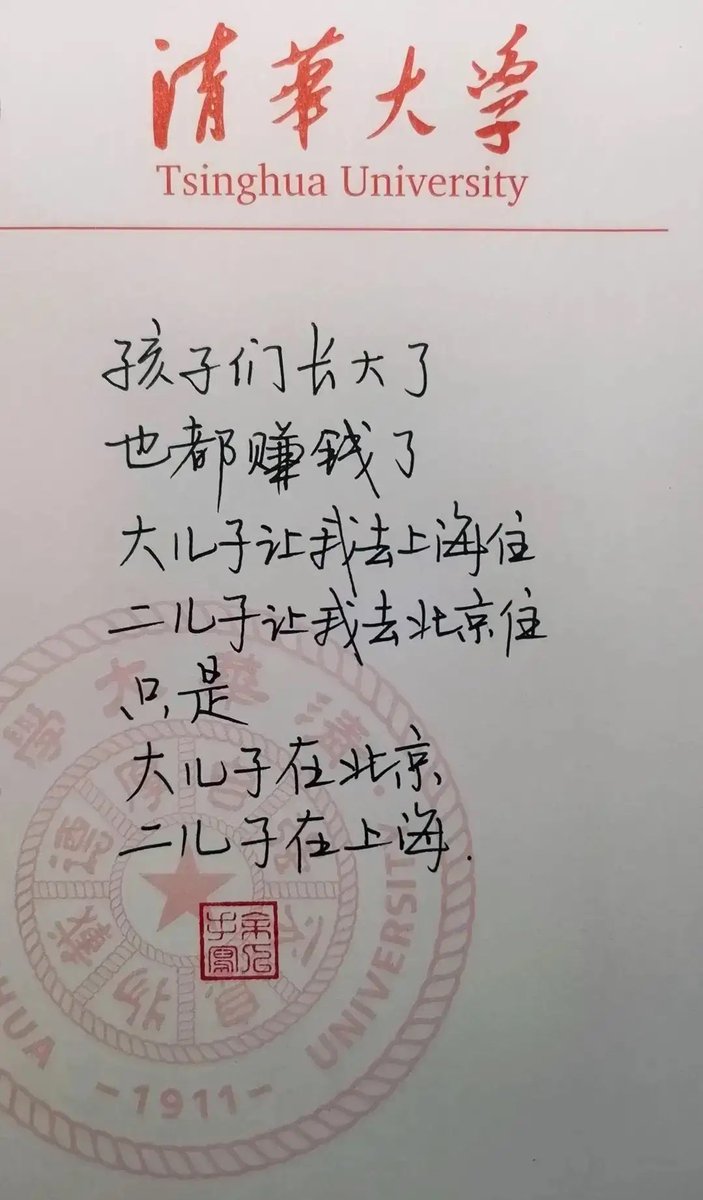 清華大学
Tsinghua University
孩子们长大了
也都赚钱了
大儿子让我去上海住
二儿子让我去北京住
只是
大儿子在北京
二儿子在上海.
UNIVERSITY
-1911-